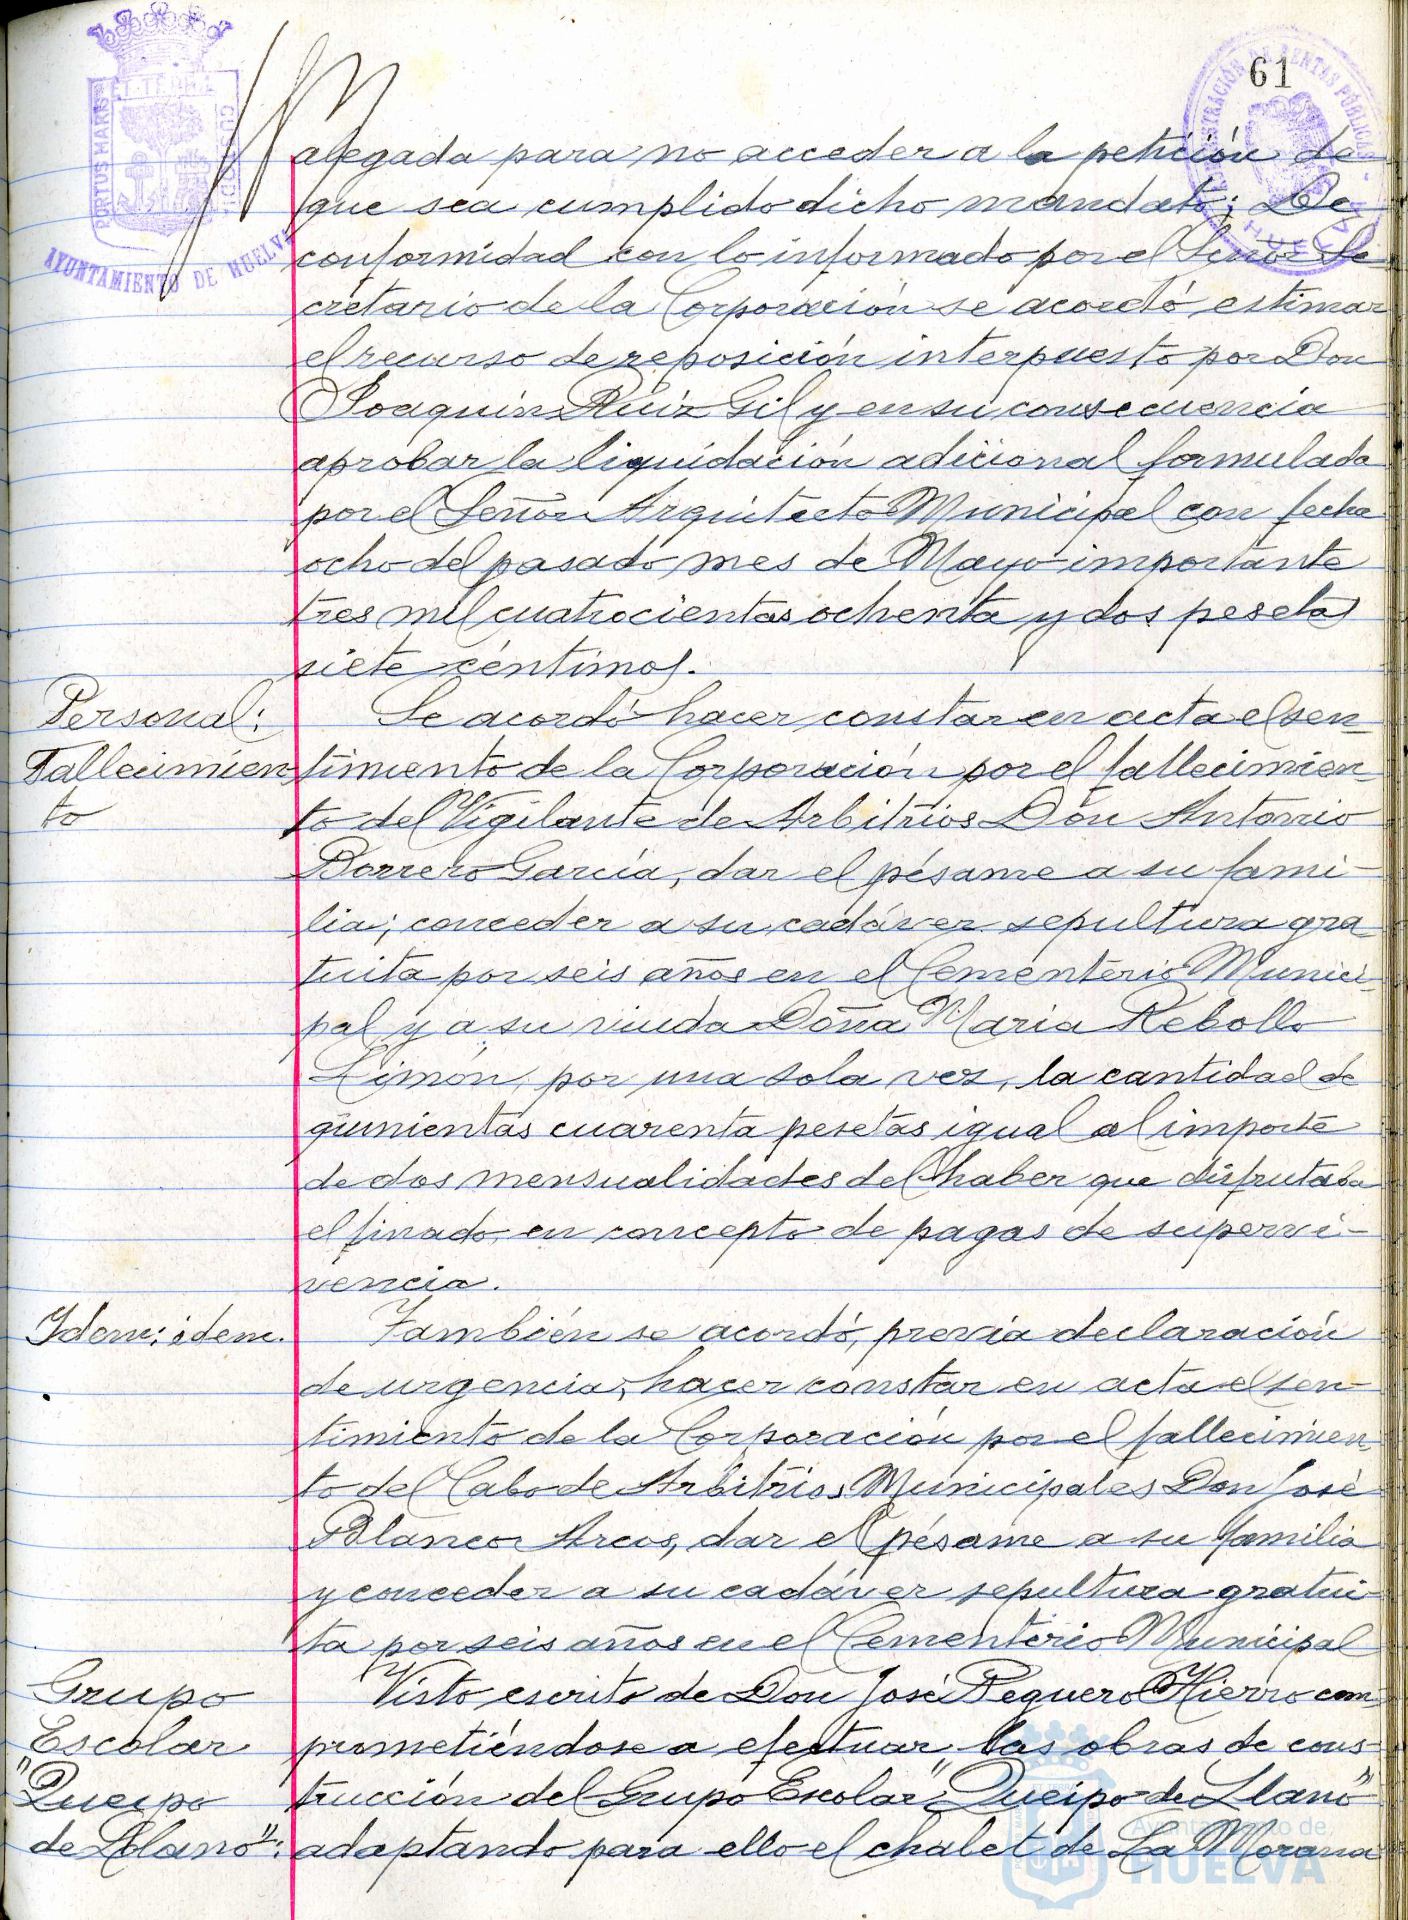 61
PORTUS MARIS
ET TERRÆ
CUSTODIA
AYUNTAMIENTO DE HUELVA
ADMINISTRACIÓN DE RENTAS PÚBLICAS
HUELVA
alegada para no acceder a la petición de
que sea cumplido dicho mandato; De
conformidad con lo informado por el Señor Se
cretario de la Corporación se acordó estimar
el recurso de reposición interpuesto por Don
Joaquín Ruiz Gil y en su consecuencia
aprobar la liquidación adicional formulada
por el Señor Arquitecto Municipal con fecha
ocho del pasado mes de Mayo importante
tres mil cuatrocientas ochenta y dos pesetas
siete céntimos.
Personal:
Fallecimien
to
Se acordó hacer constar en acta el sen-
timiento de la Corporación por el fallecimien
to del Vigilante de Arbitrios Don Antonio
Borrero García, dar el pésame a su fami-
lia; conceder a su cadáver sepultura gra
tuita por seis años en el Cementerio Munici-
pal y a su viuda Doña María Rebollo
Limón, por una sola vez, la cantidad de
quinientas cuarenta pesetas igual al importe
de dos mensualidades del haber que disfrutaba
el finado, en concepto de pagas de supervi-
vencia.
Idem: idem.
También se acordó, previa declaración
de urgencia, hacer constar en acta el sen-
timiento de la Corporación por el fallecimien
to del Cabo de Arbitrios Municipales Don José
Blanco Arcos, dar el pésame a su familia
y conceder a su cadáver sepultura gratui-
ta por seis años en el Cementerio Municipal
Grupo
Escolar
"Queipo
de Llano":
Visto escrito de Don José Peguero Hierro com
prometiéndose a efectuar las obras de cons-
trucción del Grupo Escolar "Queipo de Llano"
adaptando para ello el chalet de La Morana
Ayuntamiento de
HUELVA